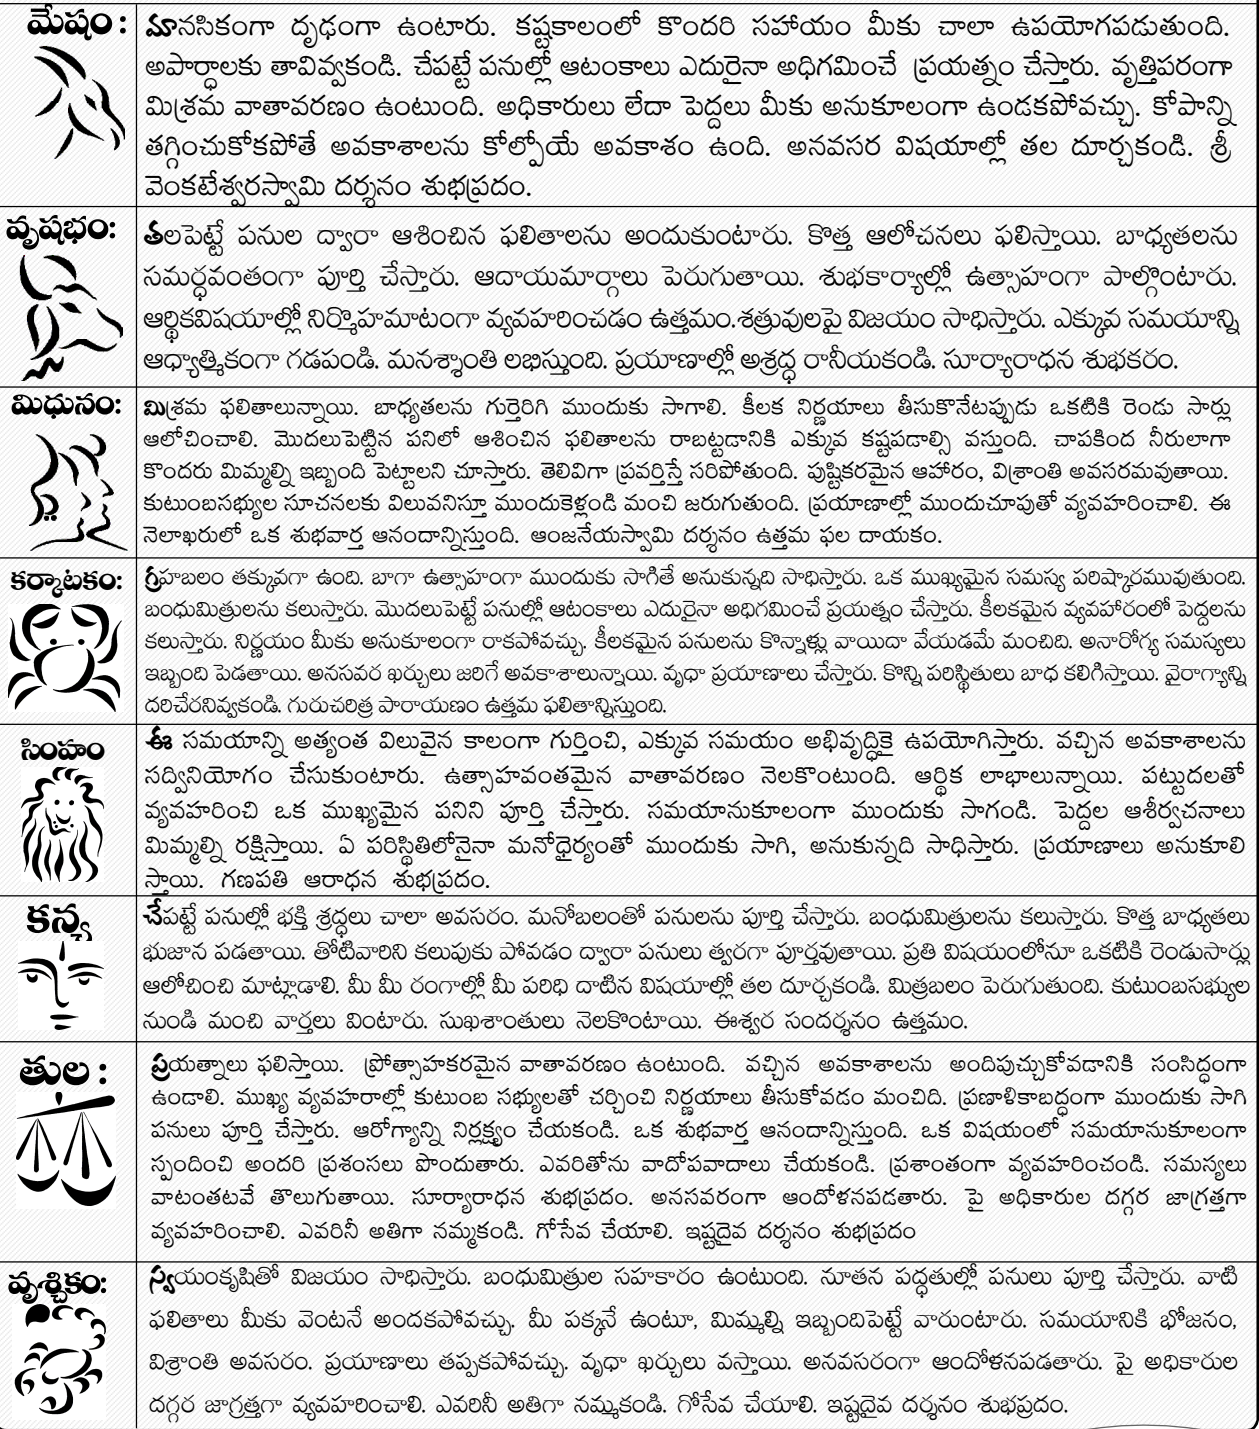 మేషం:
మానసికంగా దృఢంగా ఉంటారు. కష్టకాలంలో కొందరి సహాయం మీకు చాలా ఉపయోగపడుతుంది.
అపార్ధాలకు తావివ్వకండి. చేపట్టే పనుల్లో ఆటంకాలు ఎదురైనా అధిగమించే ప్రయత్నం చేస్తారు. వృత్తిపరంగా
మిశ్రమ వాతావరణం ఉంటుంది. అధికారులు లేదా పెద్దలు మీకు అనుకూలంగా ఉండకపోవచ్చు. కోపాన్ని
తగ్గించుకోకపోతే అవకాశాలను కోల్పోయే అవకాశం ఉంది. అనవసర విషయాల్లో తల దూర్చకండి. శ్రీ
వెంకటేశ్వరస్వామి దర్శనం శుభప్రదం.
వృషభం:
తలపెట్టే పనుల ద్వారా ఆశించిన ఫలితాలను అందుకుంటారు. కొత్త ఆలోచనలు ఫలిస్తాయి. బాధ్యతలను
సమర్ధవంతంగా పూర్తి చేస్తారు. ఆదాయమార్గాలు పెరుగుతాయి. శుభకార్యాల్లో ఉత్సాహంగా పాల్గొంటారు.
ఆర్థికవిషయాల్లో నిర్మొహమాటంగా వ్యవహరించడం ఉత్తమం.శత్రువులపై విజయం సాధిస్తారు. ఎక్కువ సమయాన్ని
ఆధ్యాత్మికంగా గడపండి. మనశ్శాంతి లభిస్తుంది. ప్రయాణాల్లో అశ్రద్ధ రానీయకండి. సూర్యారాధన శుభకరం.
మిధునం:
మిశ్రమ ఫలితాలున్నాయి. బాధ్యతలను గుర్తెరిగి ముందుకు సాగాలి. కీలక నిర్ణయాలు తీసుకొనేటప్పుడు ఒకటికి రెండు సార్లు
ఆలోచించాలి. మొదలుపెట్టిన పనిలో ఆశించిన ఫలితాలను రాబట్టడానికి ఎక్కువ కష్టపడాల్సి వస్తుంది. చాపకింద నీరులాగా
కొందరు మిమ్మల్ని ఇబ్బంది పెట్టాలని చూస్తారు. తెలివిగా ప్రవర్తిస్తే సరిపోతుంది. పుష్టికరమైన ఆహారం, విశ్రాంతి అవసరమవుతాయి.
కుటుంబసభ్యుల సూచనలకు విలువనిస్తూ ముందుకెళ్లండి మంచి జరుగుతుంది. ప్రయాణాల్లో ముందుచూపుతో వ్యవహరించాలి. ఈ
నెలాఖరులో ఒక శుభవార్త ఆనందాన్నిస్తుంది. ఆంజనేయస్వామి దర్శనం ఉత్తమ ఫల దాయకం.
కర్కాటకం:
గ్రహబలం తక్కువగా ఉంది. బాగా ఉత్సాహంగా ముందుకు సాగితే అనుకున్నది సాధిస్తారు. ఒక ముఖ్యమైన సమస్య పరిష్కారమవుతుంది.
బంధుమిత్రులను కలుస్తారు. మొదలుపెట్టే పనుల్లో ఆటంకాలు ఎదురైనా అధిగమించే ప్రయత్నం చేస్తారు. కీలకమైన వ్యవహారంలో పెద్దలను
కలుస్తారు. నిర్ణయం మీకు అనుకూలంగా రాకపోవచ్చు. కీలకమైన పనులను కొన్నాళ్లు వాయిదా వేయడమే మంచిది. అనారోగ్య సమస్యలు
ఇబ్బంది పెడతాయి. అనసవర ఖర్చులు జరిగే అవకాశాలున్నాయి. వృధా ప్రయాణాలు చేస్తారు. కొన్ని పరిస్థితులు బాధ కలిగిస్తాయి. వైరాగ్యాన్ని
దరిచేరనివ్వకండి. గురుచరిత్ర పారాయణం ఉత్తమ ఫలితాన్నిస్తుంది.
సింహం
ఈ సమయాన్ని అత్యంత విలువైన కాలంగా గుర్తించి, ఎక్కువ సమయం అభివృద్ధికై ఉపయోగిస్తారు. వచ్చిన అవకాశాలను
సద్వినియోగం చేసుకుంటారు. ఉత్సాహవంతమైన వాతావరణం నెలకొంటుంది. ఆర్థిక లాభాలున్నాయి. పట్టుదలతో
వ్యవహరించి ఒక ముఖ్యమైన పనిని పూర్తి చేస్తారు. సమయానుకూలంగా ముందుకు సాగండి. పెద్దల ఆశీర్వచనాలు
మిమ్మల్ని రక్షిస్తాయి. ఏ పరిస్థితిలోనైనా మనోధైర్యంతో ముందుకు సాగి, అనుకున్నది సాధిస్తారు. ప్రయాణాలు అనుకూలి
స్తాయి. గణపతి ఆరాధన శుభప్రదం.
కన్య
చేపట్టే పనుల్లో భక్తి శ్రద్ధలు చాలా అవసరం. మనోబలంతో పనులను పూర్తి చేస్తారు. బంధుమిత్రులను కలుస్తారు. కొత్త బాధ్యతలు
భుజాన పడతాయి. తోటివారిని కలుపుకు పోవడం ద్వారా పనులు త్వరగా పూర్తవుతాయి. ప్రతి విషయంలోనూ ఒకటికి రెండుసార్లు
ఆలోచించి మాట్లాడాలి. మీ మీ రంగాల్లో మీ పరిధి దాటిన విషయాల్లో తల దూర్చకండి. మిత్రబలం పెరుగుతుంది. కుటుంబసభ్యుల
నుండి మంచి వార్తలు వింటారు. సుఖశాంతులు నెలకొంటాయి. ఈశ్వర సందర్శనం ఉత్తమం.
తుల :
ప్రయత్నాలు ఫలిస్తాయి. ప్రోత్సాహకరమైన వాతావరణం ఉంటుంది. వచ్చిన అవకాశాలను అందిపుచ్చుకోవడానికి సంసిద్ధంగా
ఉండాలి. ముఖ్య వ్యవహరాల్లో కుటుంబ సభ్యులతో చర్చించి నిర్ణయాలు తీసుకోవడం మంచిది. ప్రణాళికాబద్ధంగా ముందుకు సాగి
పనులు పూర్తి చేస్తారు. ఆరోగ్యాన్ని నిర్లక్ష్యం చేయకండి. ఒక శుభవార్త ఆనందాన్నిస్తుంది. ఒక విషయంలో సమయానుకూలంగా
స్పందించి అందరి ప్రశంసలు పొందుతారు. ఎవరితోను వాదోపవాదాలు చేయకండి. ప్రశాంతంగా వ్యవహరించండి. సమస్యలు
వాటంతటవే తొలుగుతాయి. సూర్యారాధన శుభప్రదం. అనసవరంగా ఆందోళనపడతారు. పై అధికారుల దగ్గర జాగ్రత్తగా
వ్యవహరించాలి. ఎవరినీ అతిగా నమ్మకండి. గోసేవ చేయాలి. ఇష్టదైవ దర్శనం శుభప్రదం
వృశ్చికం:
స్వయంకృషితో విజయం సాధిస్తారు. బంధుమిత్రుల సహకారం ఉంటుంది. నూతన పద్ధతుల్లో పనులు పూర్తి చేస్తారు. వాటి
ఫలితాలు మీకు వెంటనే అందకపోవచ్చు. మీ పక్కనే ఉంటూ, మిమ్మల్ని ఇబ్బందిపెట్టే వారుంటారు. సమయానికి భోజనం,
విశ్రాంతి అవసరం. ప్రయాణాలు తప్పకపోవచ్చు. వృధా ఖర్చులు వస్తాయి. అనవసరంగా ఆందోళనపడతారు. పై అధికారుల
దగ్గర జాగ్రత్తగా వ్యవహరించాలి. ఎవరినీ అతిగా నమ్మకండి. గోసేవ చేయాలి. ఇష్టదైవ దర్శనం శుభప్రదం.